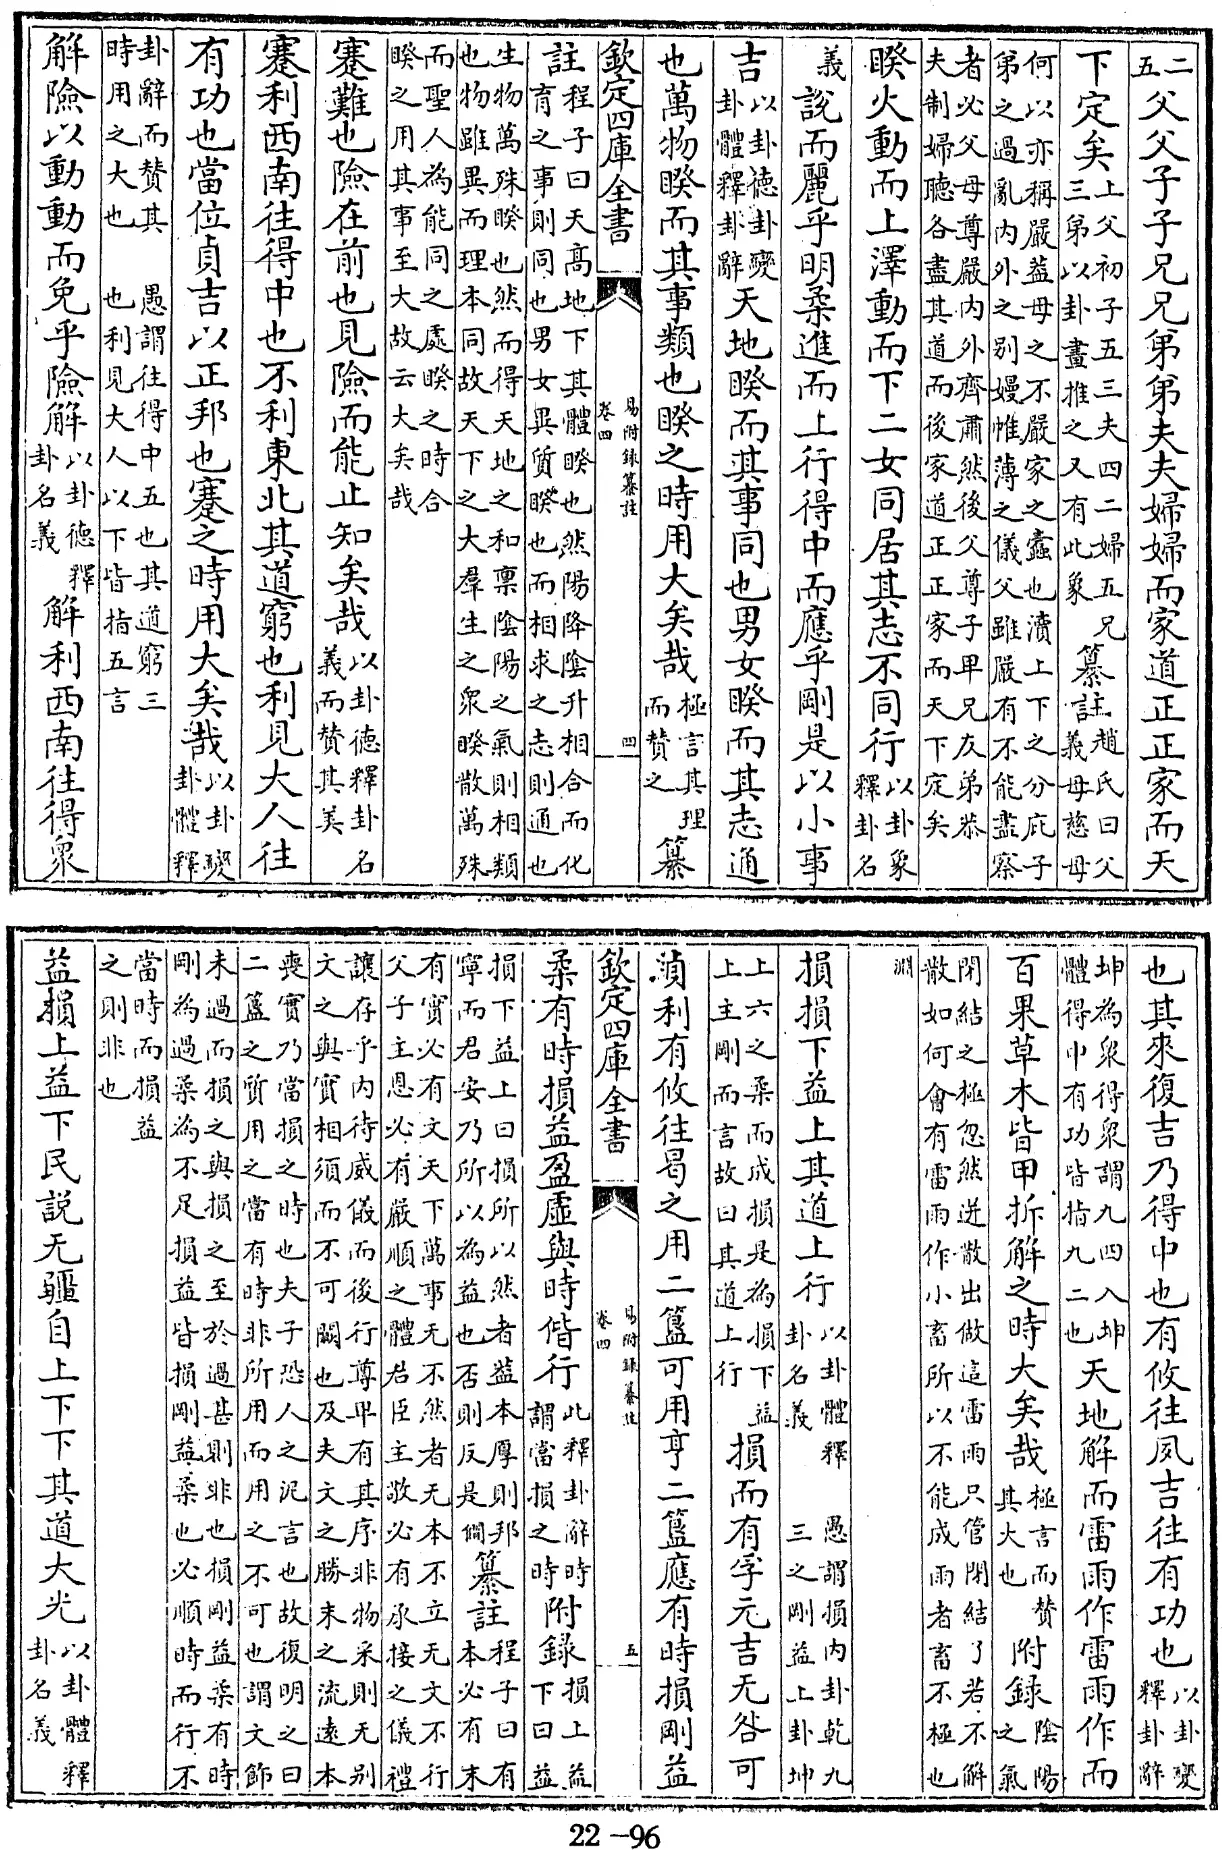 二五父父子子兄兄弟弟夫夫婦婦而家道正正家而天
下定矣上父初子五三夫四二婦五兄三弟以卦畫推之又有此象纂註趙氏曰父義母慈母
何以亦稱嚴葢母之不嚴家之蠧也瀆上下之分庇子
弟之過亂内外之别嫚帷薄之儀父雖嚴有不能盡察
者必父母尊嚴内外齊肅然後父尊子卑兄友弟恭
夫制婦聽各盡其道而後家道正正家而天下定矣
睽火動而上澤動而下二女同居其志不同行以卦象釋卦名
義說而麗乎明柔進而上行得中而應乎剛是以小事
吉以卦德卦變卦體釋卦辭天地睽而其事同也男女睽而其志通
也萬物睽而其事類也睽之時用大矣哉極言其理而贊之纂
欽定四庫全書 易附録纂註卷四 四
註程子曰天高地下其體睽也然陽降陰升相合而化
育之事則同也男女異質睽也而相求之志則通也
生物萬殊睽也然而得天地之和禀陰陽之氣則相類
也物雖異而理本同故天下之大羣生之衆睽散萬殊
而聖人為能同之處睽之時合
睽之用其事至大故云大矣哉
蹇難也險在前也見險而能止知矣哉以卦德釋卦名義而贊其美
蹇利西南往得中也不利東北其道窮也利見大人往
有功也當位貞吉以正邦也蹇之時用大矣哉以卦變卦體釋
卦辭而贊其時用之大也 愚謂往得中五也其道窮三也利見大人以下皆指五言
解險以動動而免乎險解以卦德釋卦名義解利西南往得衆
也其來復吉乃得中也有攸往夙吉往有功也以卦變釋卦辭
坤為衆得衆謂九四入坤體得中有功皆指九二也天地解而雷雨作雷雨作而
百果草木皆甲拆解之時大矣哉極言而贊其大也附錄陰陽之氣
閉結之極忽然迸散出做這雷雨只管閉結了若不解
散如何會有雷雨作小畜所以不能成雨者畜不極也
淵
損損下益上其道上行以卦體釋卦名義 愚謂損内卦乾九三之剛益上卦坤
上六之柔而成損是為損下益上主剛而言故曰其道上行損而有孚元吉无咎可
貞利有攸往曷之用二簋可用亨二簋應有時損剛益
欽定四庫全書 易附録纂註卷四 五
柔有時損益盈虛與時偕行此釋卦辭時謂當損之時附錄損上益下曰益
損下益上曰損所以然者葢本厚則邦
寧而君安乃所以為益也否則反是僩纂註程子曰有本必有末
有實必有文天下萬事无不然者无本不立无文不行
父子主恩必有嚴順之體君臣主敬必有承接之儀禮
讓存乎内待威儀而後行尊卑有其序非物采則无别
文之與實相須而不可闕也及夫文之勝末之流遠本
喪實乃當損之時也夫子恐人之泥言也故復明之曰
二簋之質用之當有時非所用而用之不可也謂文飾
未過而損之與損之至於過甚則非也損剛益柔有時
剛為過柔為不足損益皆損剛益柔也必順時而行不
當時而損益
之則非也
益損上益下民說无疆自上下下其道大光以卦體釋卦名義
22-96